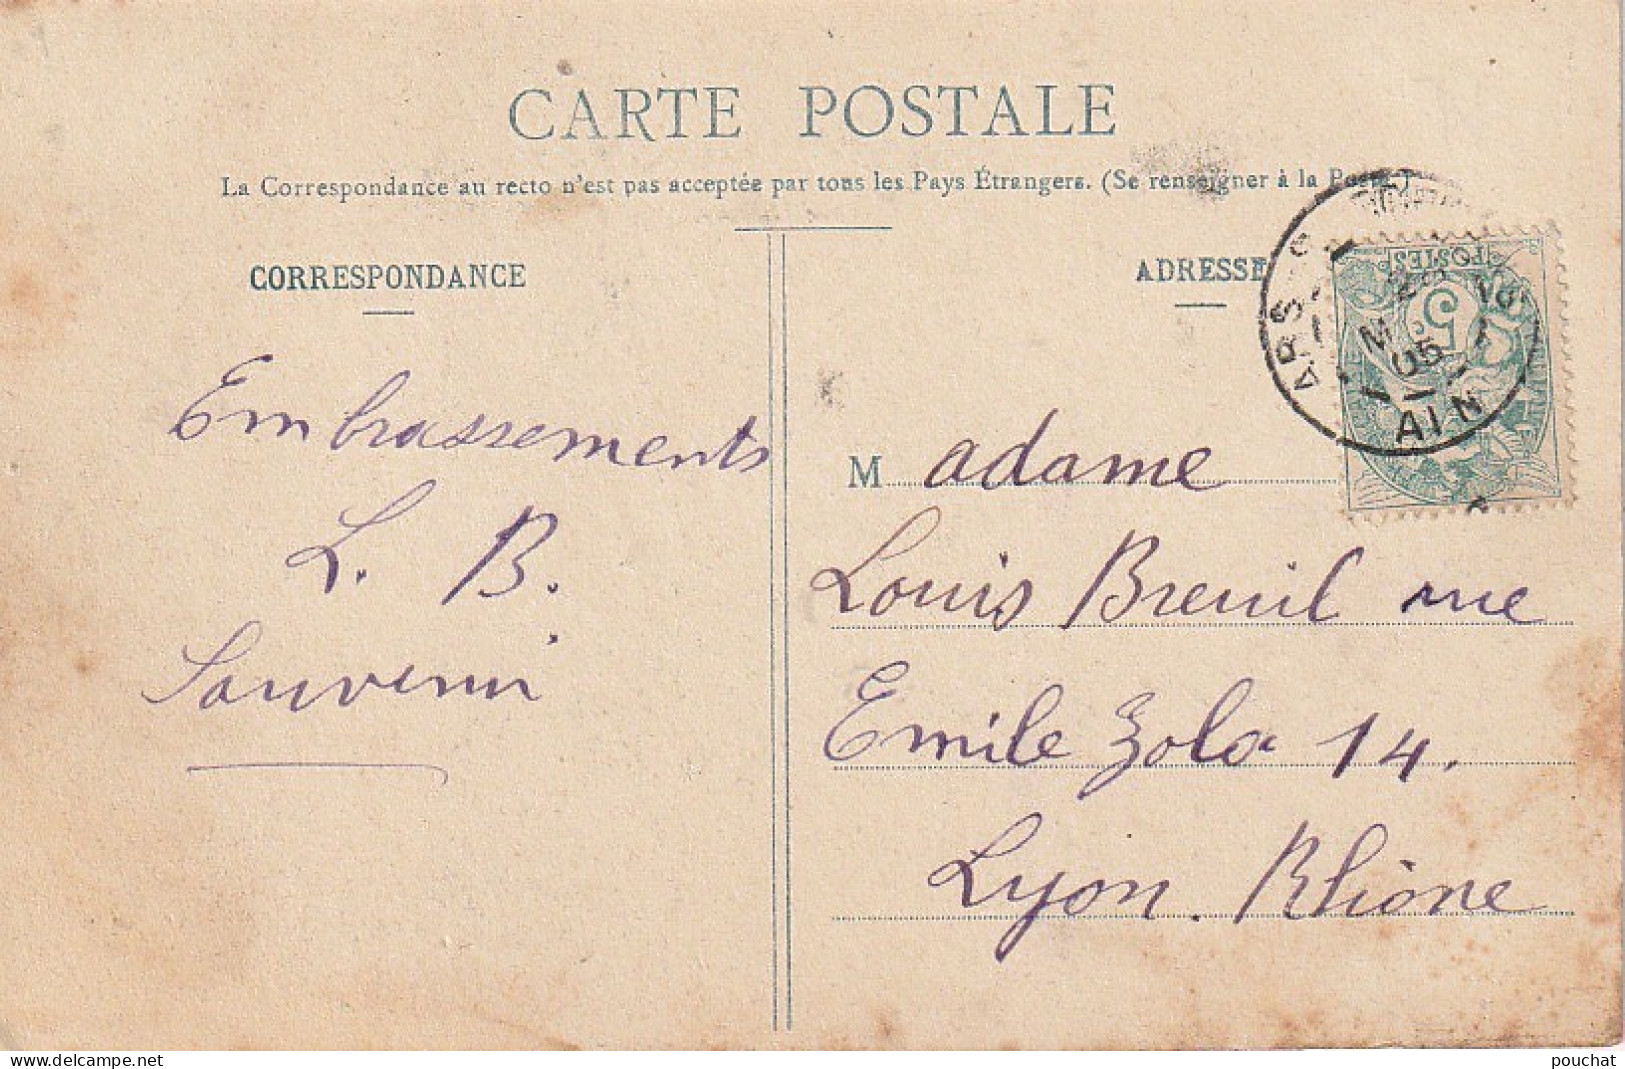 CARTE POSTALE
La Correspondance au recto n'est pas acceptée par tous les Pays Étrangers. (Se renseigner à la Poste.)
CORRESPONDANCE
ADRESSE
POSTES
5
c
05
AIN
Embrassements
L. B.
Souvenir
Madame
Louis Breuil rue
Emile Zola 14.
Lyon. Rhône
pouchat